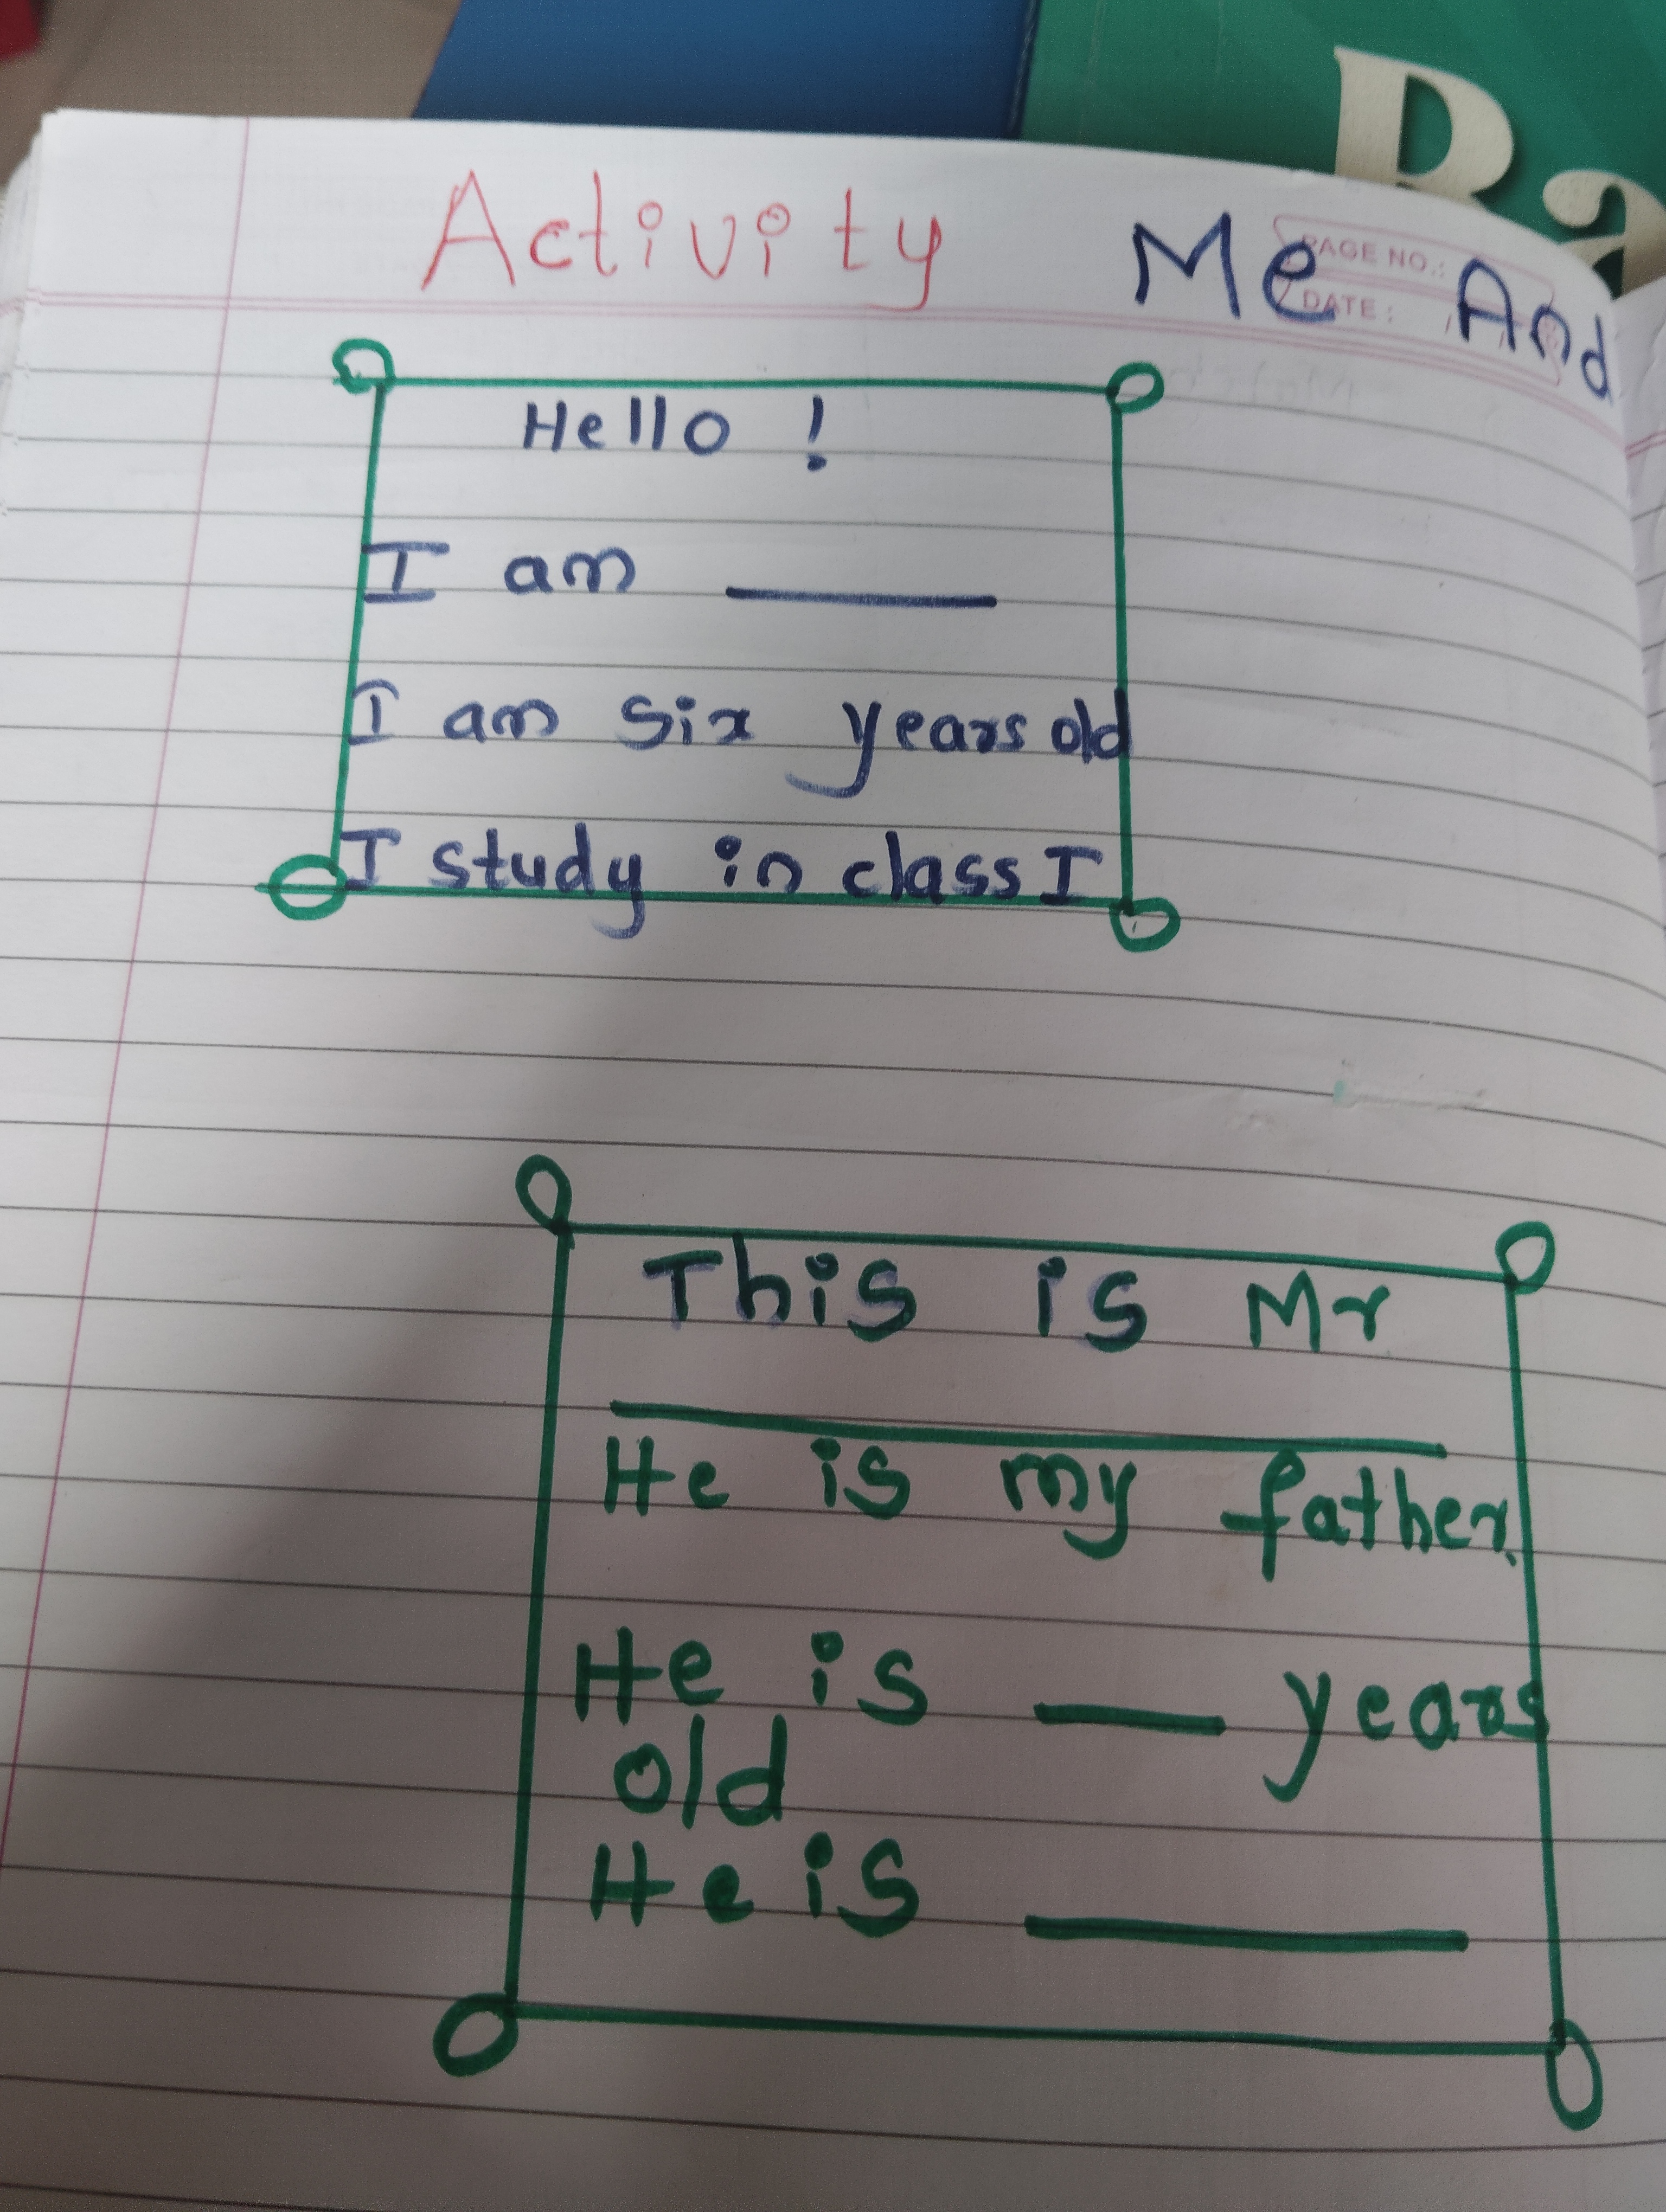 Ra
Activity Me And
PAGE NO.:
DATE:
Hello !
I am ______
I am six years old
I study in class I
This is Mr
______
He is my father.
He is ___ years
old
He is ______